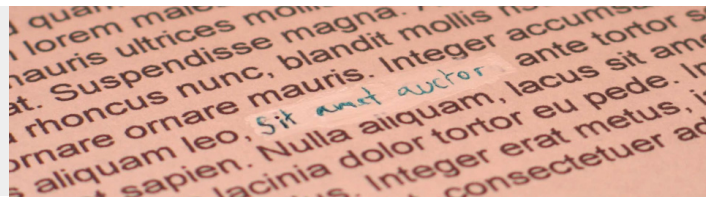 d quam
lorem male
mauris ultrices mollis
at. Suspendisse magna.
rhoncus nunc, blandit mollis
ornare ornare mauris. Integer accumsa
s aliquam leo, sit amet auctor ante tortor
sapien. Nulla aliquam, lacus sit ame
lacinia dolor tortor eu pede. In
Integer erat metus,
consectetuer ad